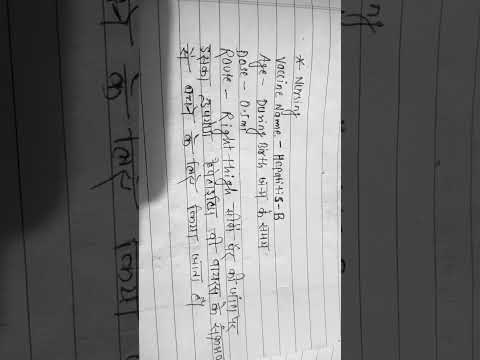 * Nursing
Vaccine Name - Hepatitis-B
Age - During Birth जन्म के समय
Dose - 0.5ml
Route - Right thigh सीधे पैर की जांघ पर
इसका उपयोग हेपेटाइटिस बी वायरस के संक्रमण
से बचाने के लिए किया जाता है